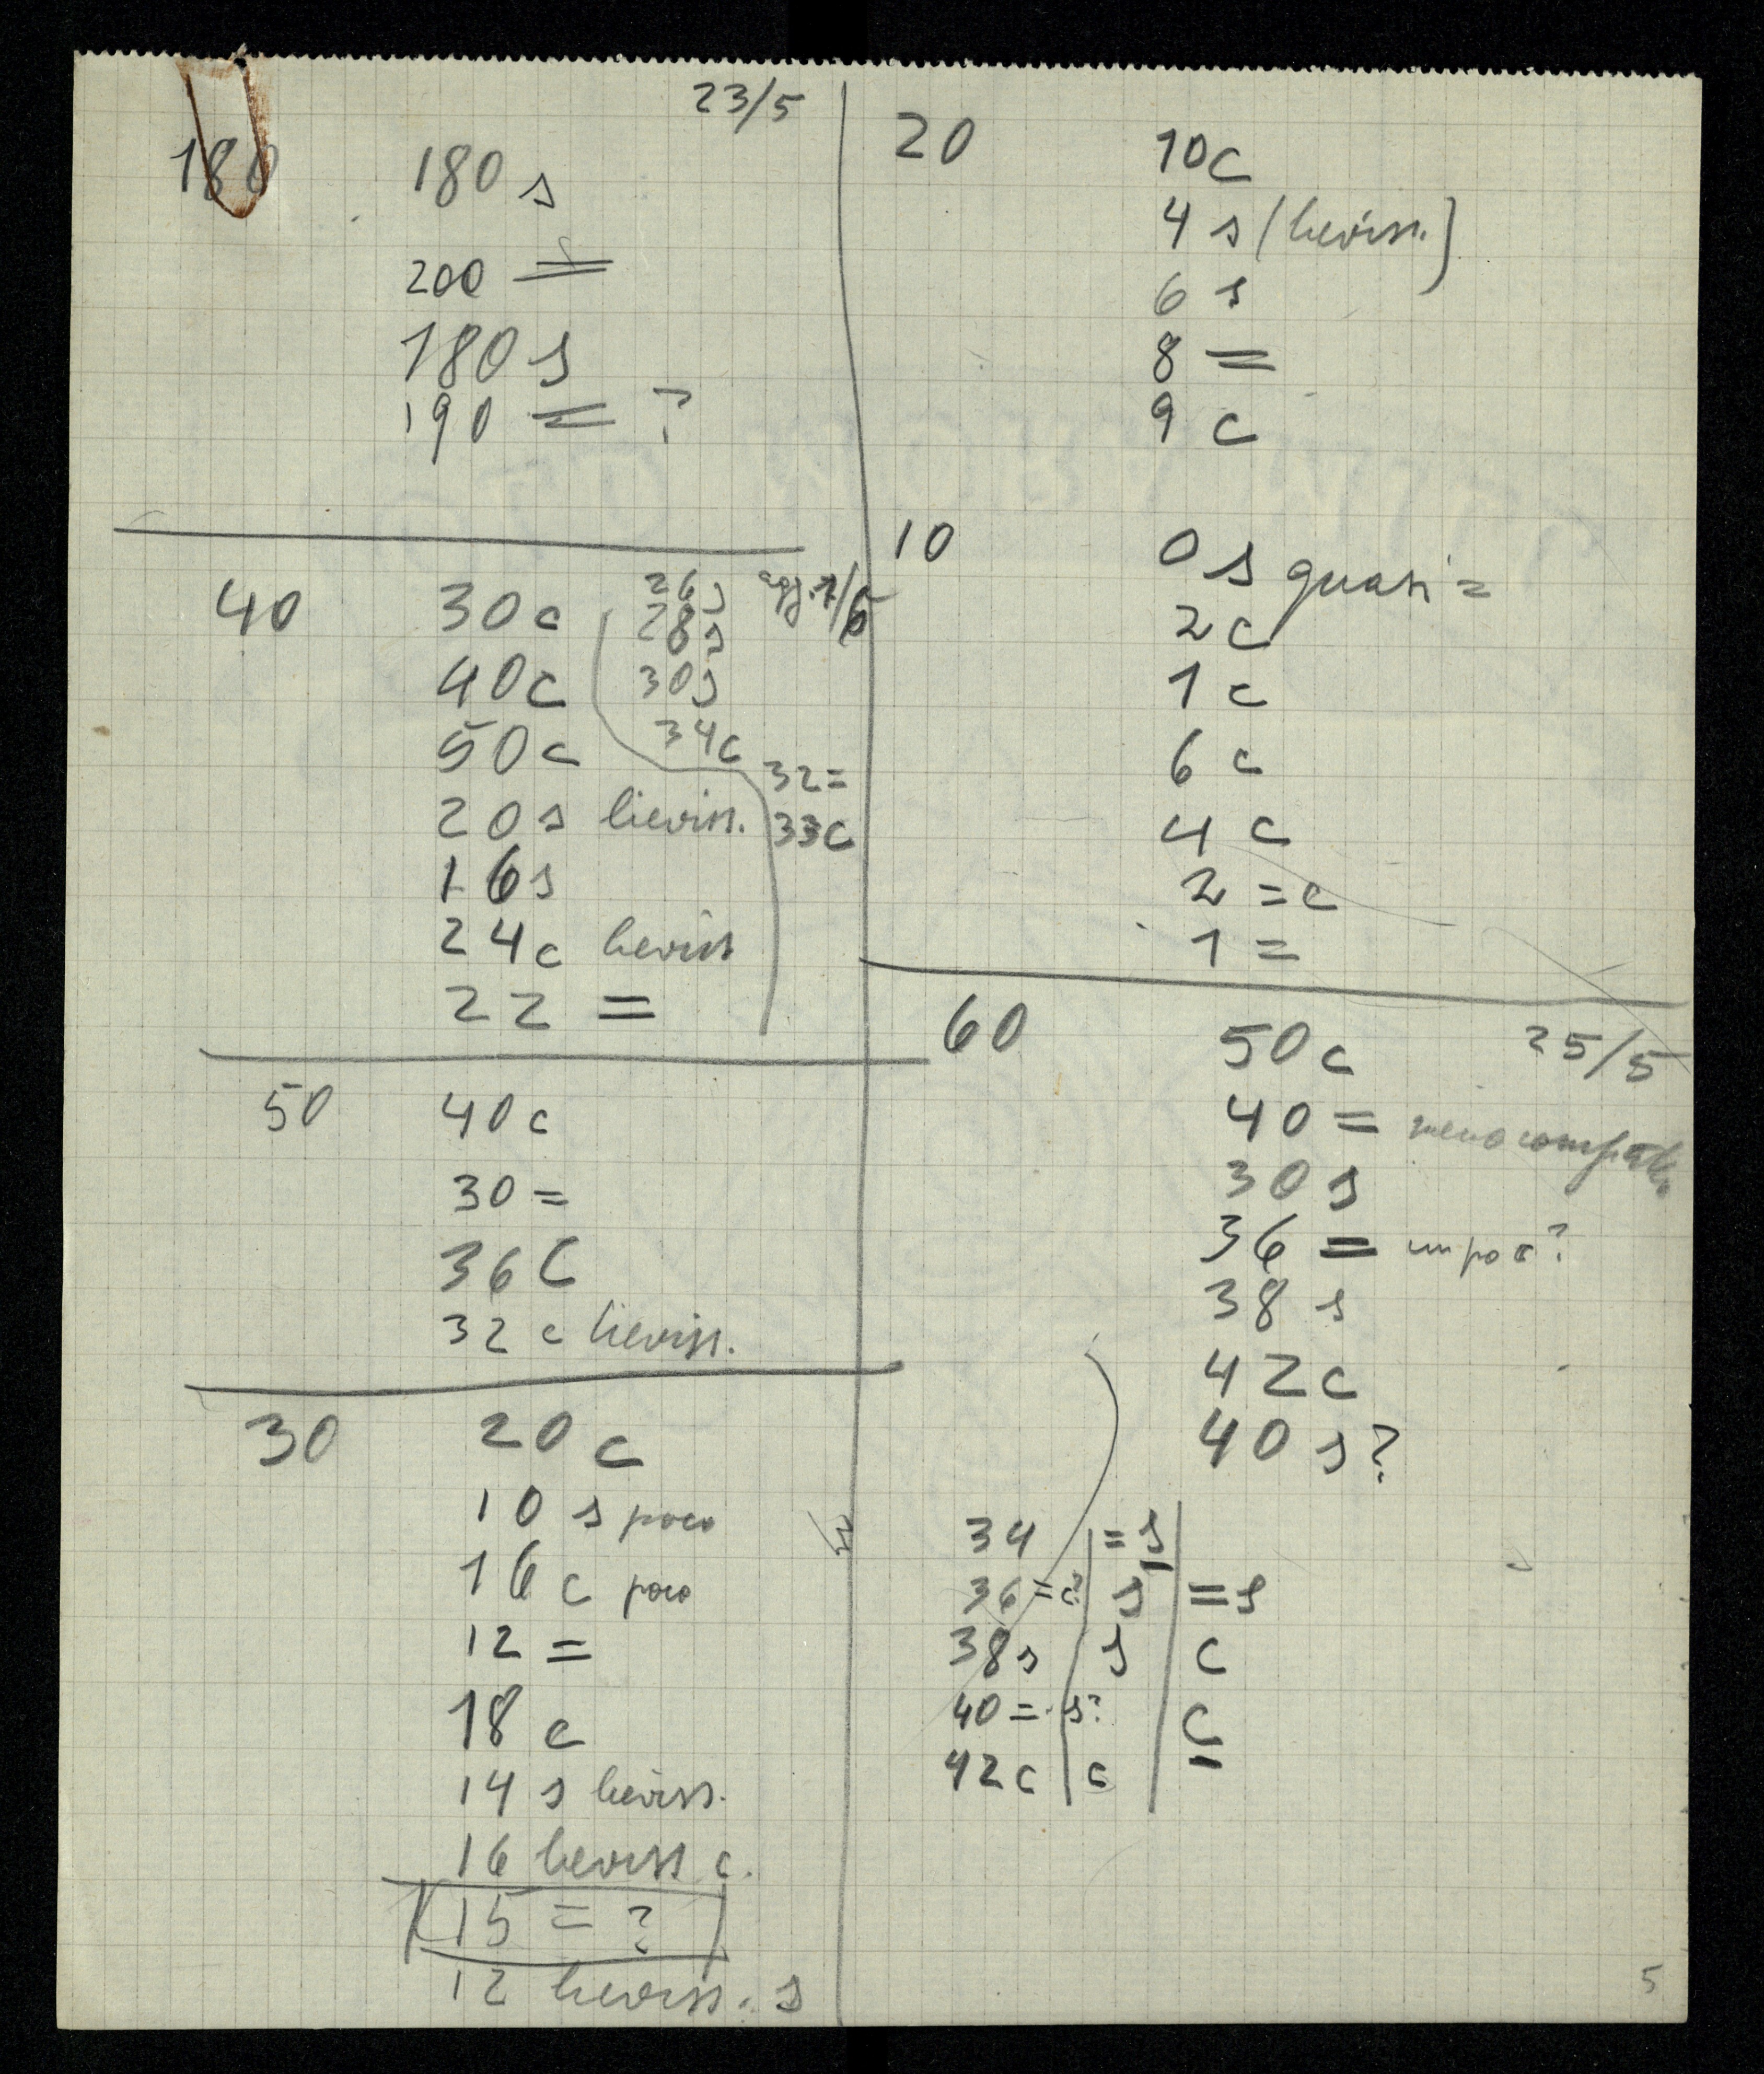 23/5
180 180 s
200 =
180 s
190 = ?
40 30 c
40 c
50 c
20 s lieviss.
16 s
24 c lieviss
22 =
26 s agg. 1/6
28 s
30 s
34 c
32 =
33 c
50 40 c
30 =
36 C
32 c lieviss.
30 20 c
10 s poco
16 c poco
12 =
18 c
14 s lieviss.
16 lieviss c.
15 = ?
12 lieviss. s
20 10 c
4 s (lieviss.)
6 s
8 =
9 c
10 0 s quasi =
2 c
1 c
6 c
4 c
2 = c
1 =
25/5
60 50 c
40 = meno compatto
30 s
36 = un po c?
38 s
42 c
40 s?
34 | = s |
36 = c? | s | = s
38 s | s | c
40 = s? | c
42 c | c |
5